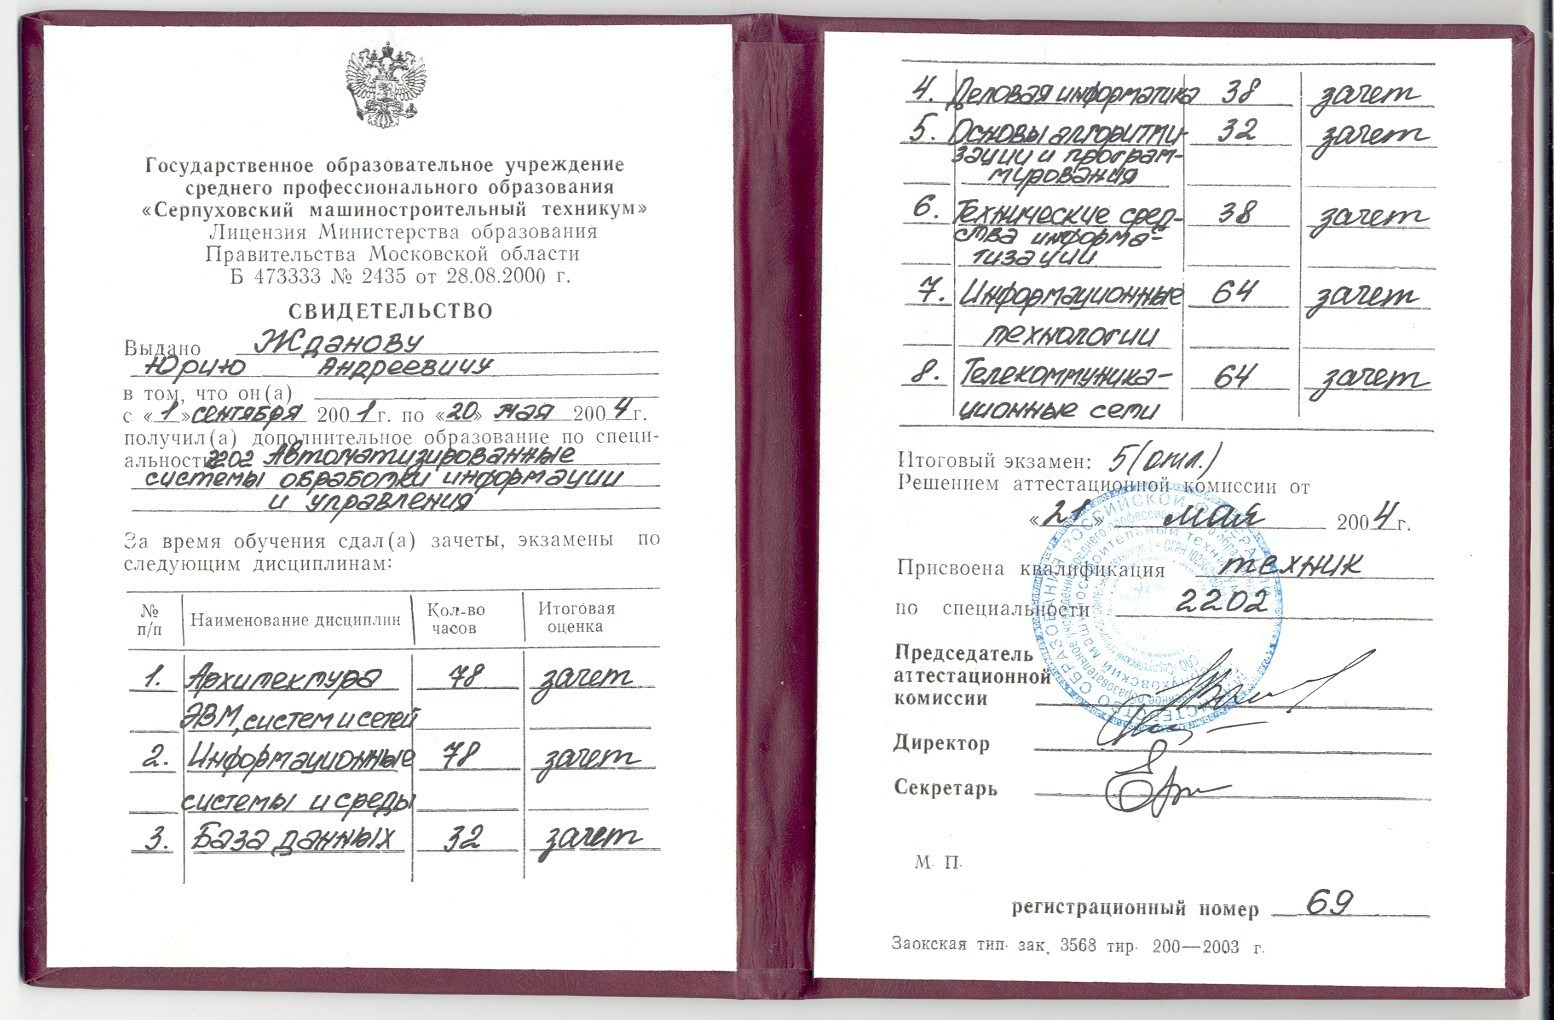 Государственное образовательное учреждение
среднего профессионального образования
«Серпуховский машиностроительный техникум»
Лицензия Министерства образования
Правительства Московской области
Б 473333 № 2435 от 28.08.2000 г.
СВИДЕТЕЛЬСТВО
Выдано Жданову
Юрию Андреевичу
в том, что он(а)
с «1» сентября 2001 г. по «20» мая 2004 г.
получил(а) дополнительное образование по специ-
альности 2202 Автоматизированные
системы обработки информации
и управления
За время обучения сдал(а) зачеты, экзамены по
следующим дисциплинам:
№ Наименование дисциплин Кол-во Итоговая
п/п часов оценка
1. Архитектура 78 зачет
ЭВМ, систем и сетей
2. Информационные 78 зачет
системы и среды
3. База данных 32 зачет
4. Деловая информатика 38 зачет
5. Основы алгоритми- 32 зачет
зации и програм-
мирования
6. Технические сред- 38 зачет
ства информа-
тизации
7. Информационные 64 зачет
технологии
8. Телекоммуника- 64 зачет
ционные сети
Итоговый экзамен: 5 (отл.)
Решением аттестационной комиссии от
«21» мая 2004 г.
Присвоена квалификация техник
по специальности 2202
Председатель
аттестационной
комиссии
Директор
Секретарь
М. П.
регистрационный номер 69
Заокская тип. зак. 3568 тир. 200—2003 г.